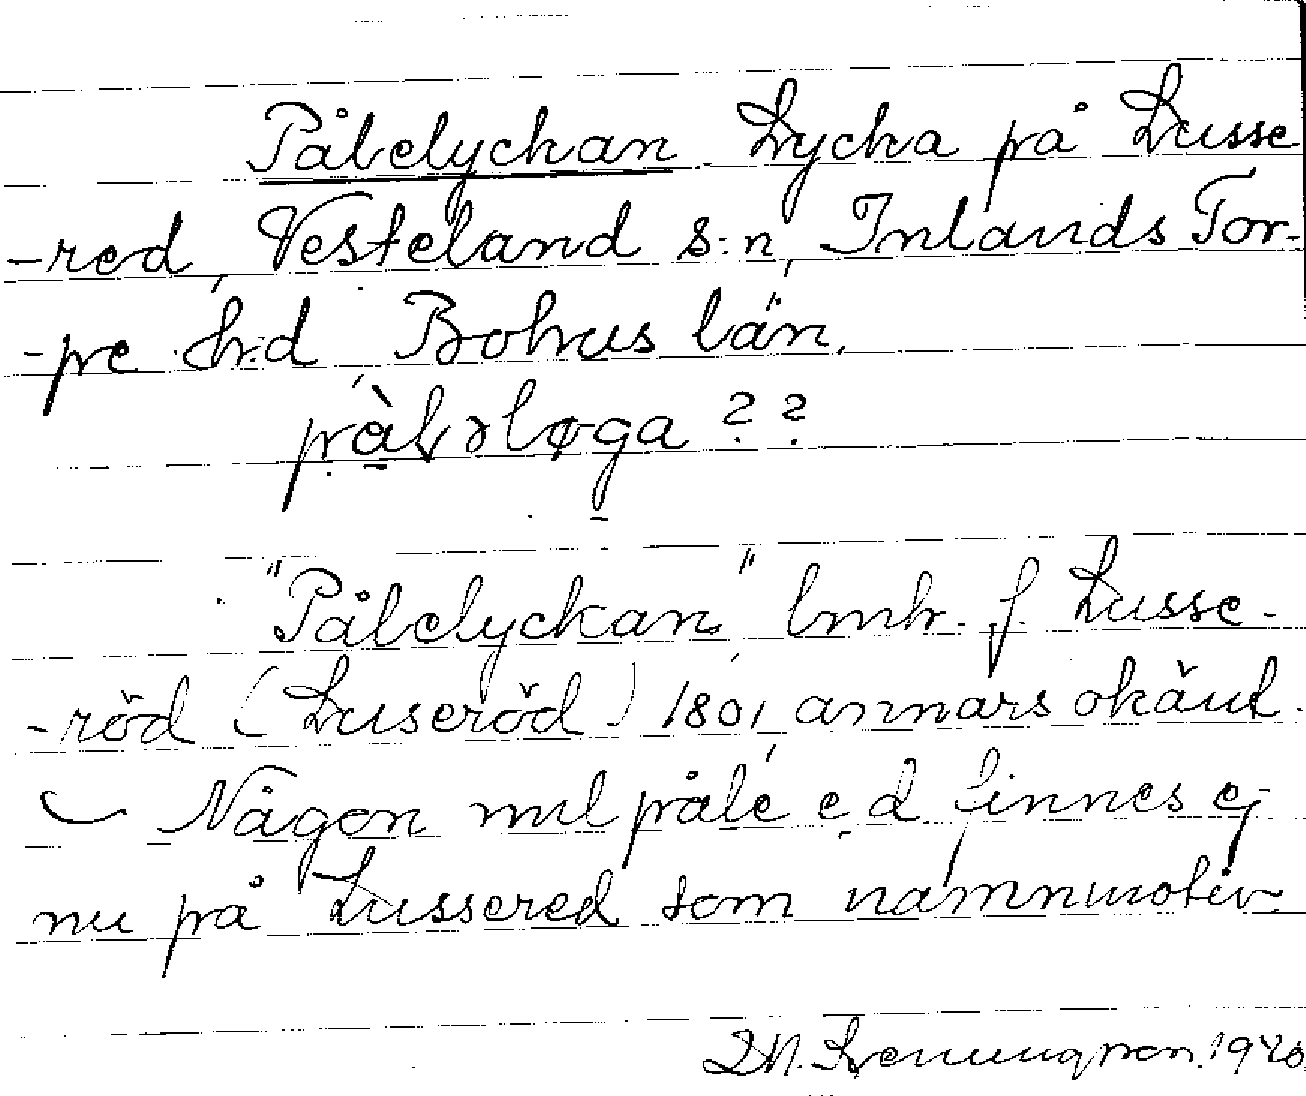 Pålelyckan. Lycka på Lusse
-red, Vesteland s:n, Inlands Tor-
-pe h:d, Bohus län.
"Pålelyckan" lmh. f. Lusse-
-röd (Luseröd) 1801, annars okänt.
Någon milpåle e.d. finnes ej
nu på Lussered som namnmotiv.